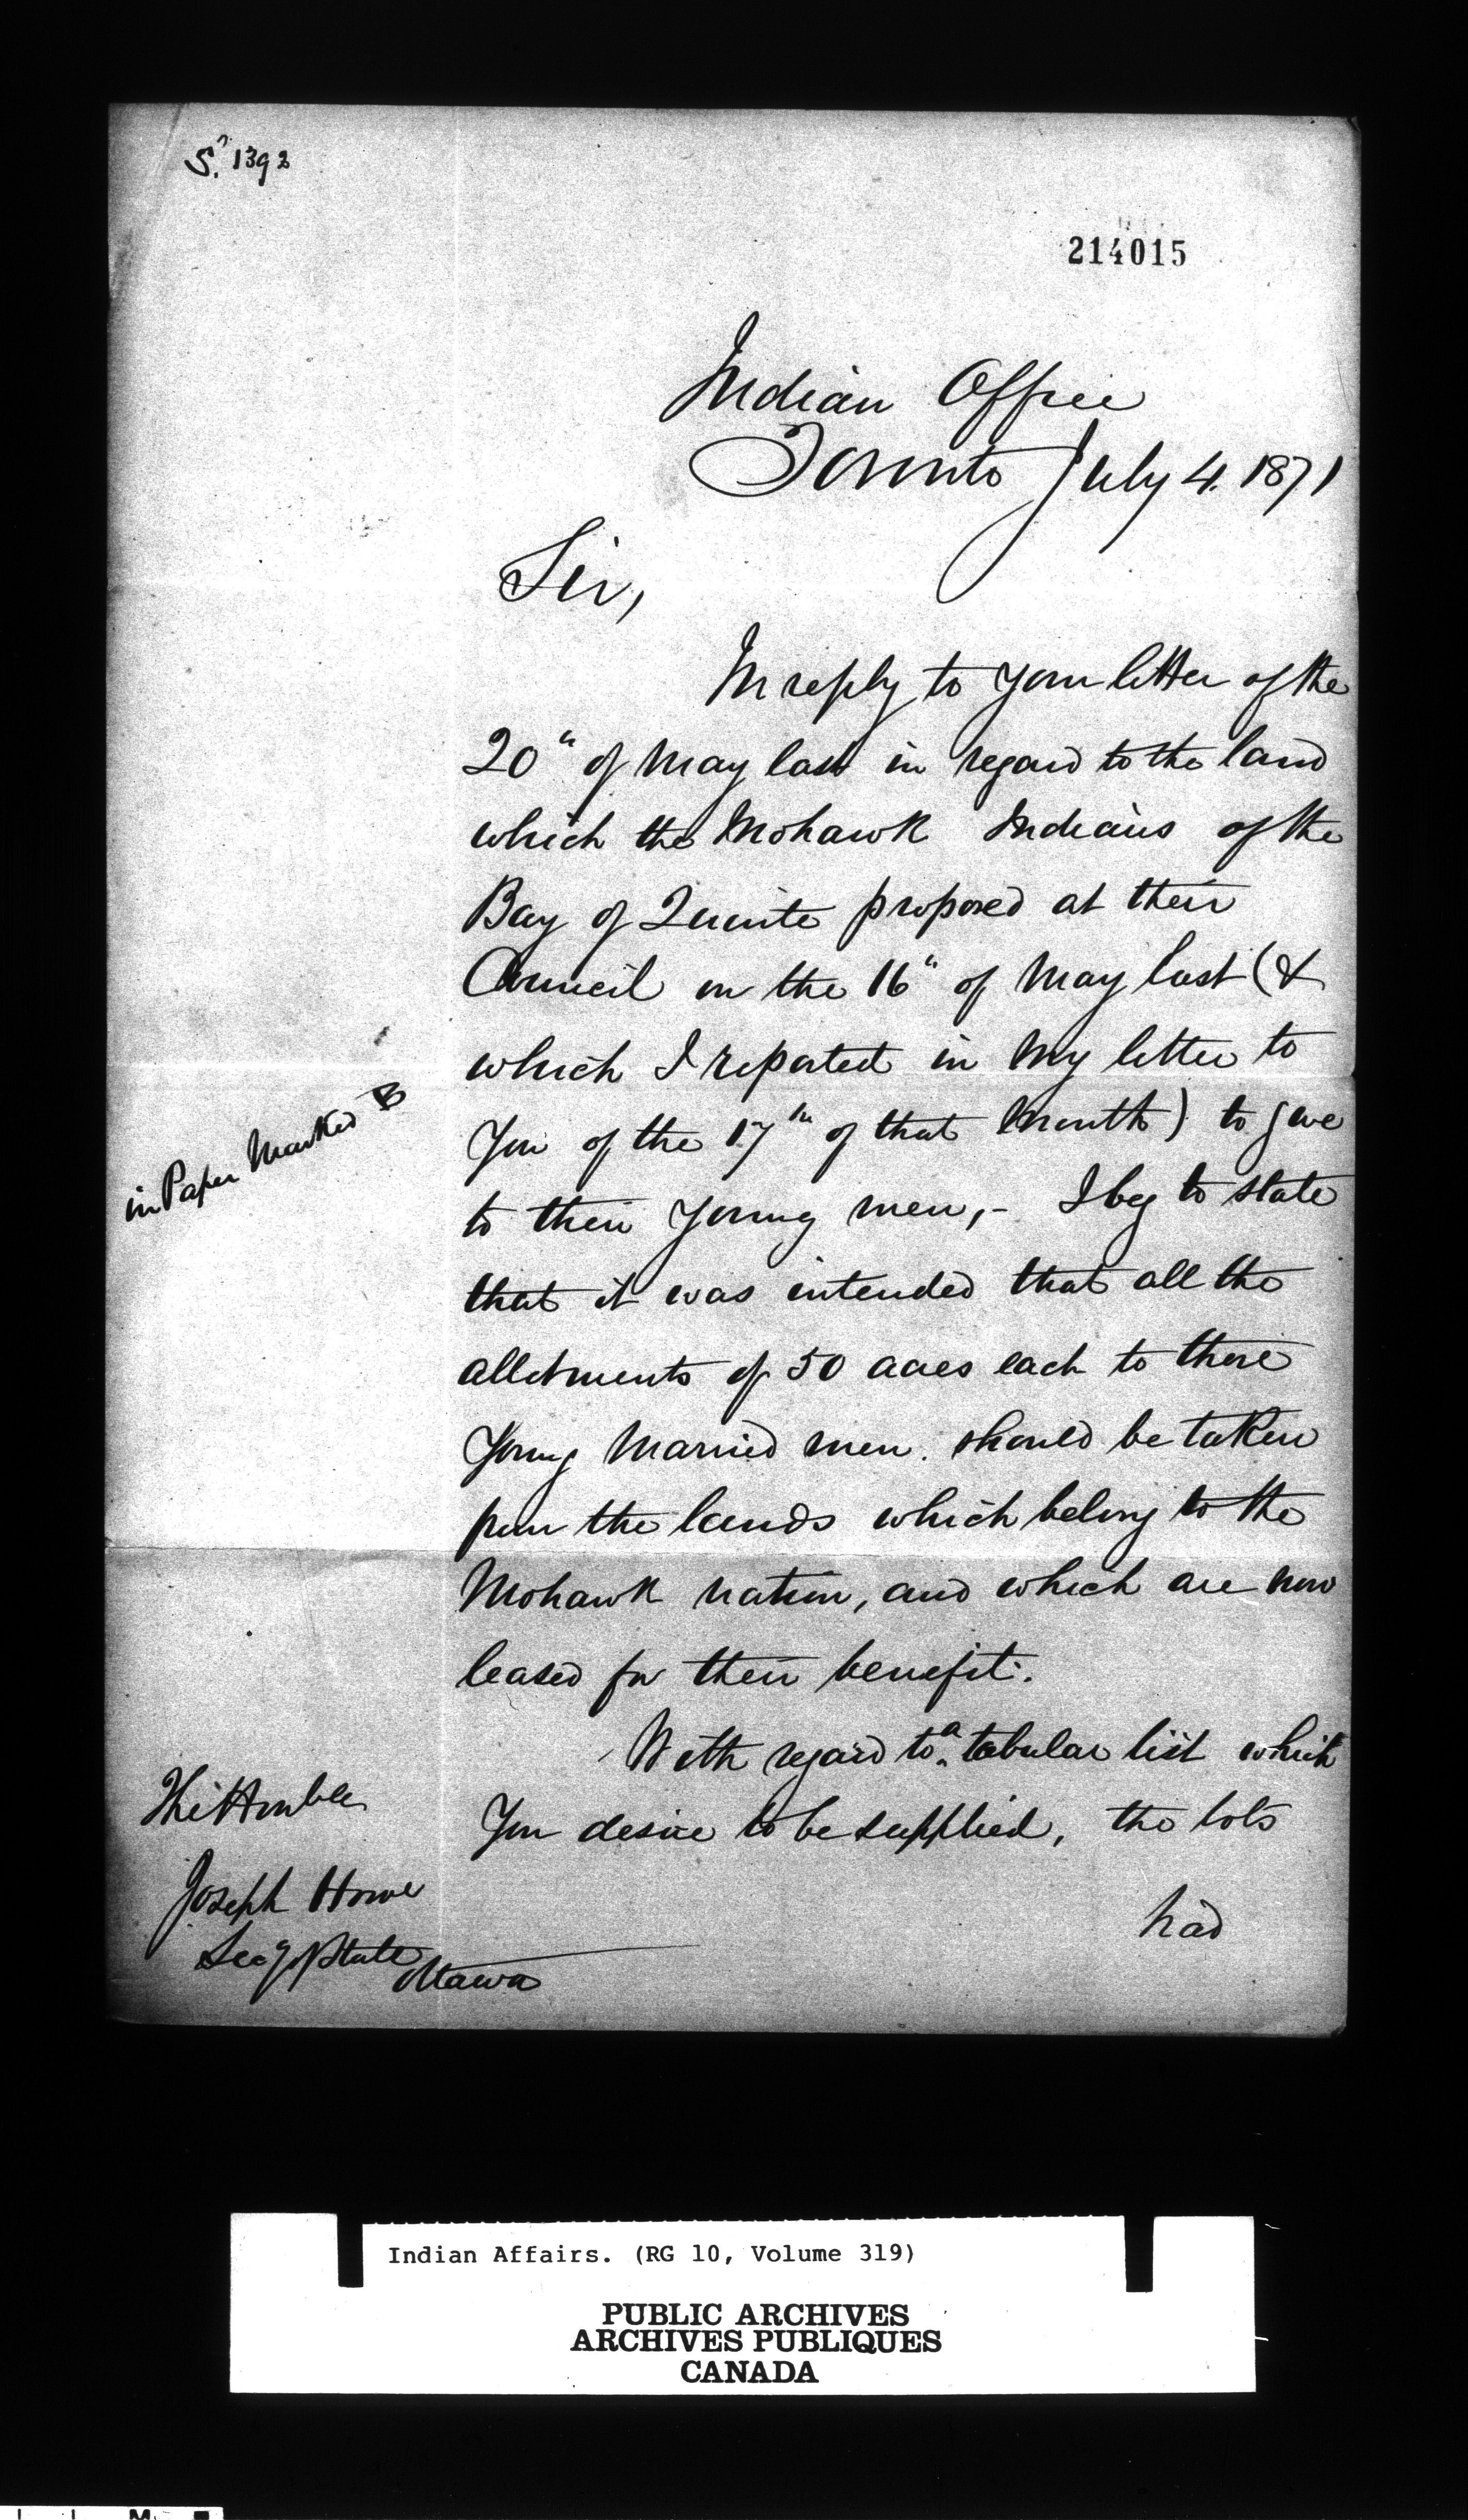 S. 1392
214015
Indian Office
Toronto July 4. 1871
Sir,
In reply to your letter of the
20" of May last in regard to the land
which the Mohawk Indians of the
Bay of Quinte proposed at their
Council on the 16" of May last (&
which I reported in my letter to
you of the 17th of that month) to give
in Paper Marked B
to their young men,- I beg to state
that it was intended that all the
allotments of 50 acres each to these
young married men. should be taken
from the lands which belong to the
Mohawk nation, and which are now
leased for their benefit.
With regard to a tabular list which
you desire to be supplied, the lots
had
The Honble
Joseph Howe
Secy of State
Ottawa
Indian Affairs. (RG 10, Volume 319)
PUBLIC ARCHIVES
ARCHIVES PUBLIQUES
CANADA